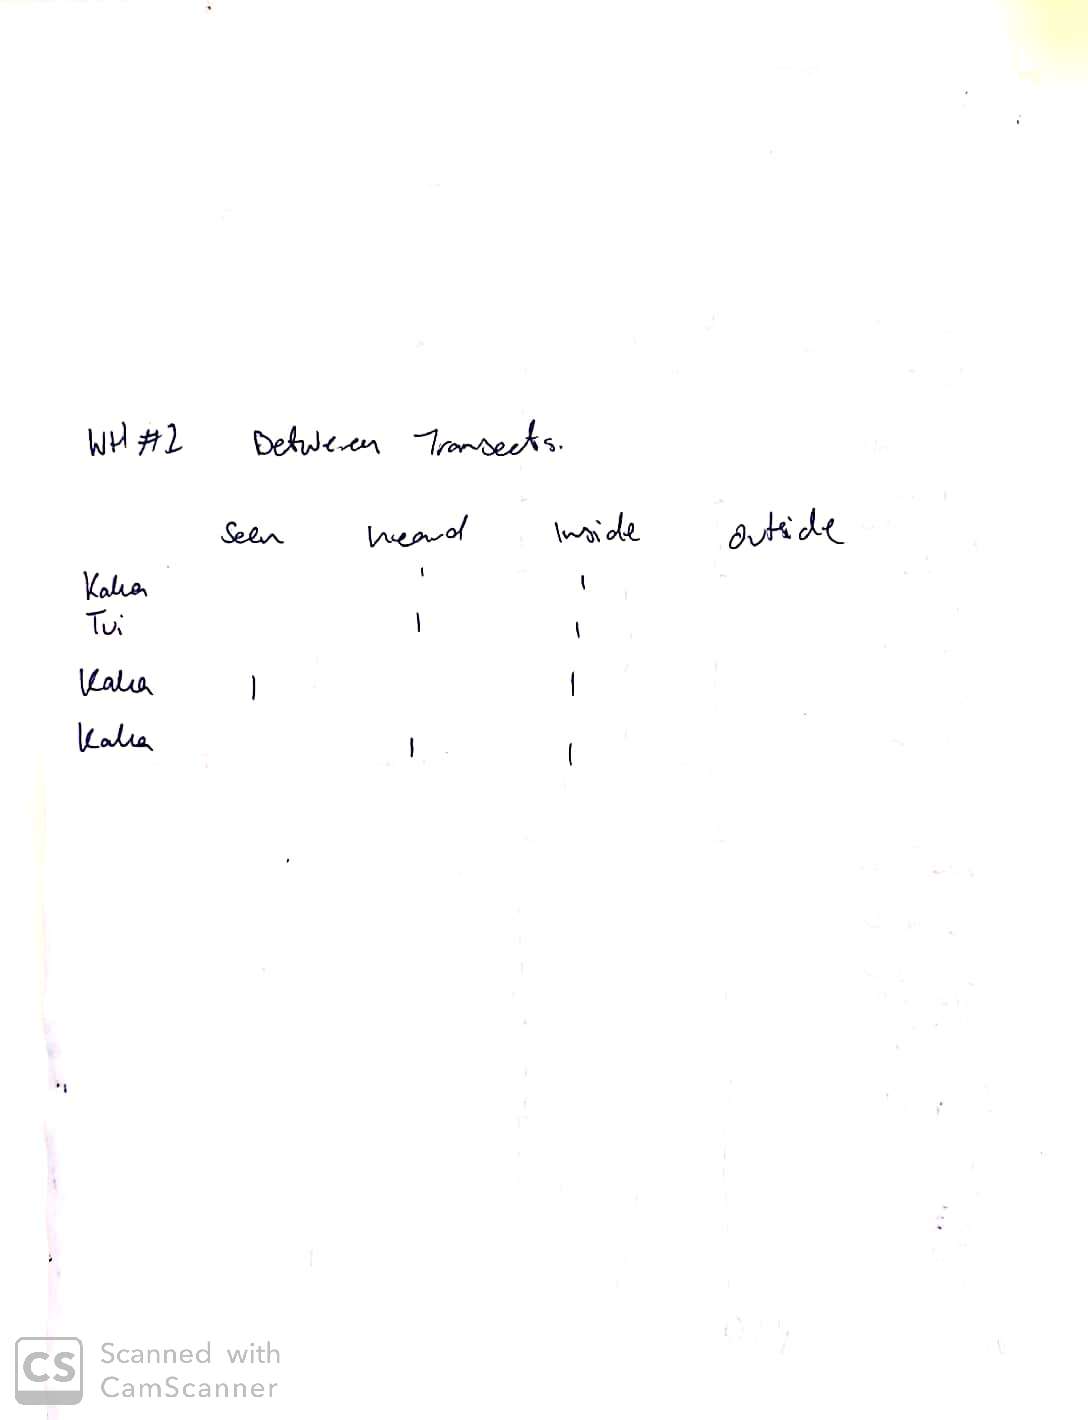 WH #2 Between Transects.
Seen heard Inside Outside
Kaka 1 1
Tui 1 1
Kaka 1 1
Kaka 1 1
CS Scanned with
CamScanner